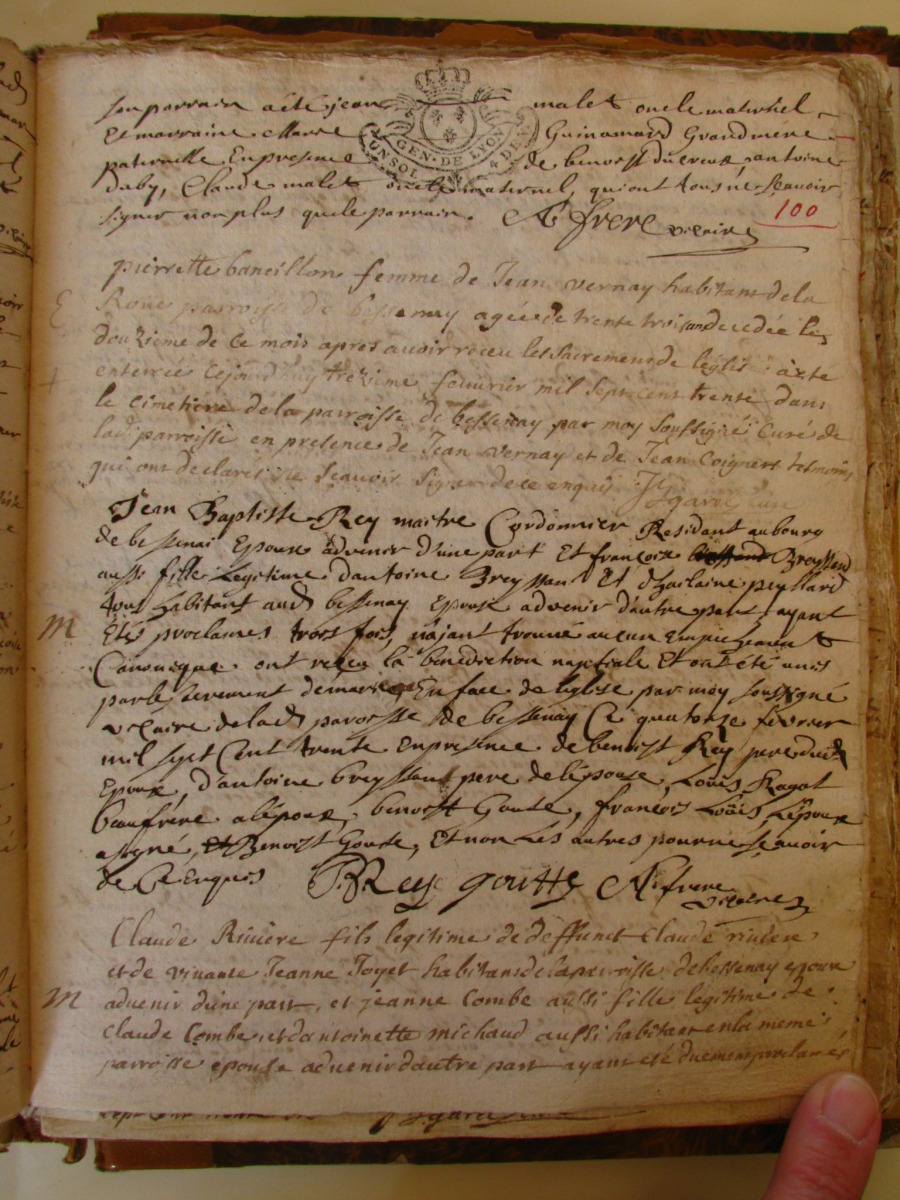 son parrain a été jean malet oncle maternel
Et marraine Guinamard Grandmere
paternelle En presence de benoist ducreux antoine
duby, Claude malet oncle maternel, qui ont tous ne scavoir
signer non plus que le parrain. N. frere vicaire
100
GEN. DE LYON
UN SOL 4 DE
pierrette bancillon femme de Jean vernay habitant de la
Roue parroisse de bessenay agée de trente trois ans decedée le
douzieme de ce mois apres avoir receu les sacremens de leglise a xte
E
enterrée cejourdhuy trezieme fevvrier mil sept cent trente dans
+
le cimetiere de la parroisse de bessenay par moy soussigné curé de
lad parroisse en presence de Jean vernay et de Jean Coignet tesmoins
qui ont declarés ne scavoir signer de ce enquis
Jean Baptiste Rey maitre Cordonnier Residant au bourg
de bessenai Epoux advenir d'une part Et françoise Breyssand
aussi fille Legitime d'antoine Breyssand Et
tous habitant aud bessenay Epouse advenir d'autre part ayant
M
Etés proclames trois fois, n'ajant trouvé aucun Empechement
Canonique ont receu la benediction nuptiale Et ont été unis
par le serement de mariage En face de leglise par moy soussigné
vicaire de lad paroisse de bessenay Ce quatorze fevrier
mil sept Cent trente En presence de benoist Rey pere dud
Epoux, d'antoine breyssand pere de l'épouse, Loüis Ragot
beaufrère a lépoux, benoist Goute, francois Loüis Lépoux
a signé, et Benoist Goutte, Et non Les autres pour ne scavoir
de Ce Enquis JB Rey goutte N. frere vicaire
Claude Riviere fils legitime de deffunct Claude riviere
et de vivante Jeanne Joyet habitans de la parroisse de bessenay epoux
M
advenir d'une part, et jeanne Combe aussi fille legitime de
Claude Combe et d'antoinette michaud aussi habitant en la meme
parroisse epouse advenir d'autre part ayant eté duement proclamés
sept cent trente